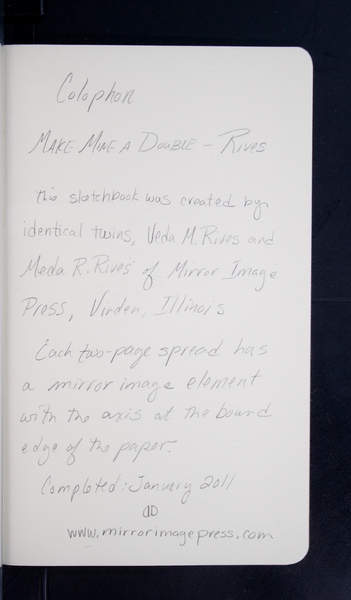 Colophon
MAKE MINE A DOUBLE - RIVES
This sketchbook was created by
identical twins, Veda M. Rives and
Meda R. Rives of Mirror Image
Press, Virden, Illinois
Each two-page spread has
a mirror image element
with the axis at the bound
edge of the paper.
Completed: January 2011
www.mirrorimagepress.com